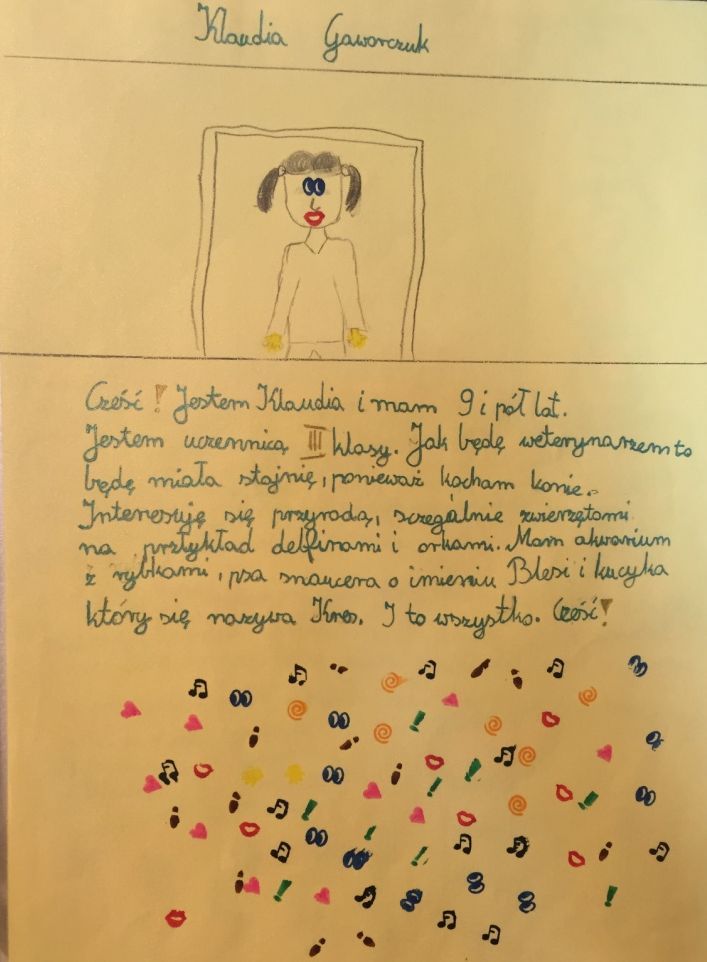 Klaudia Gaworczuk
Cześć! Jestem Klaudia i mam 9 i pół lat.
Jestem uczennicą III klasy. Jak będę weterynarzem to
będę miała stajnię, ponieważ kocham konie.
Interesuję się przyrodą, szczegálnie zwierzętami
na przłykład delfinami i orkami. Mam akwarium
z rybkami, psa snaucera o imieniu Blesi i kucyka
który się nazywa Kres. I to wszystko. Cześć!